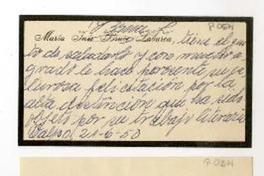 María Inés Labarca, tiene el gus
to de saludarlo y con mucho a-
grado le hace presente su ca
lurosa felicitación por la
alta distinción que ha sido
objeto por su trabajo literario
21-6-50